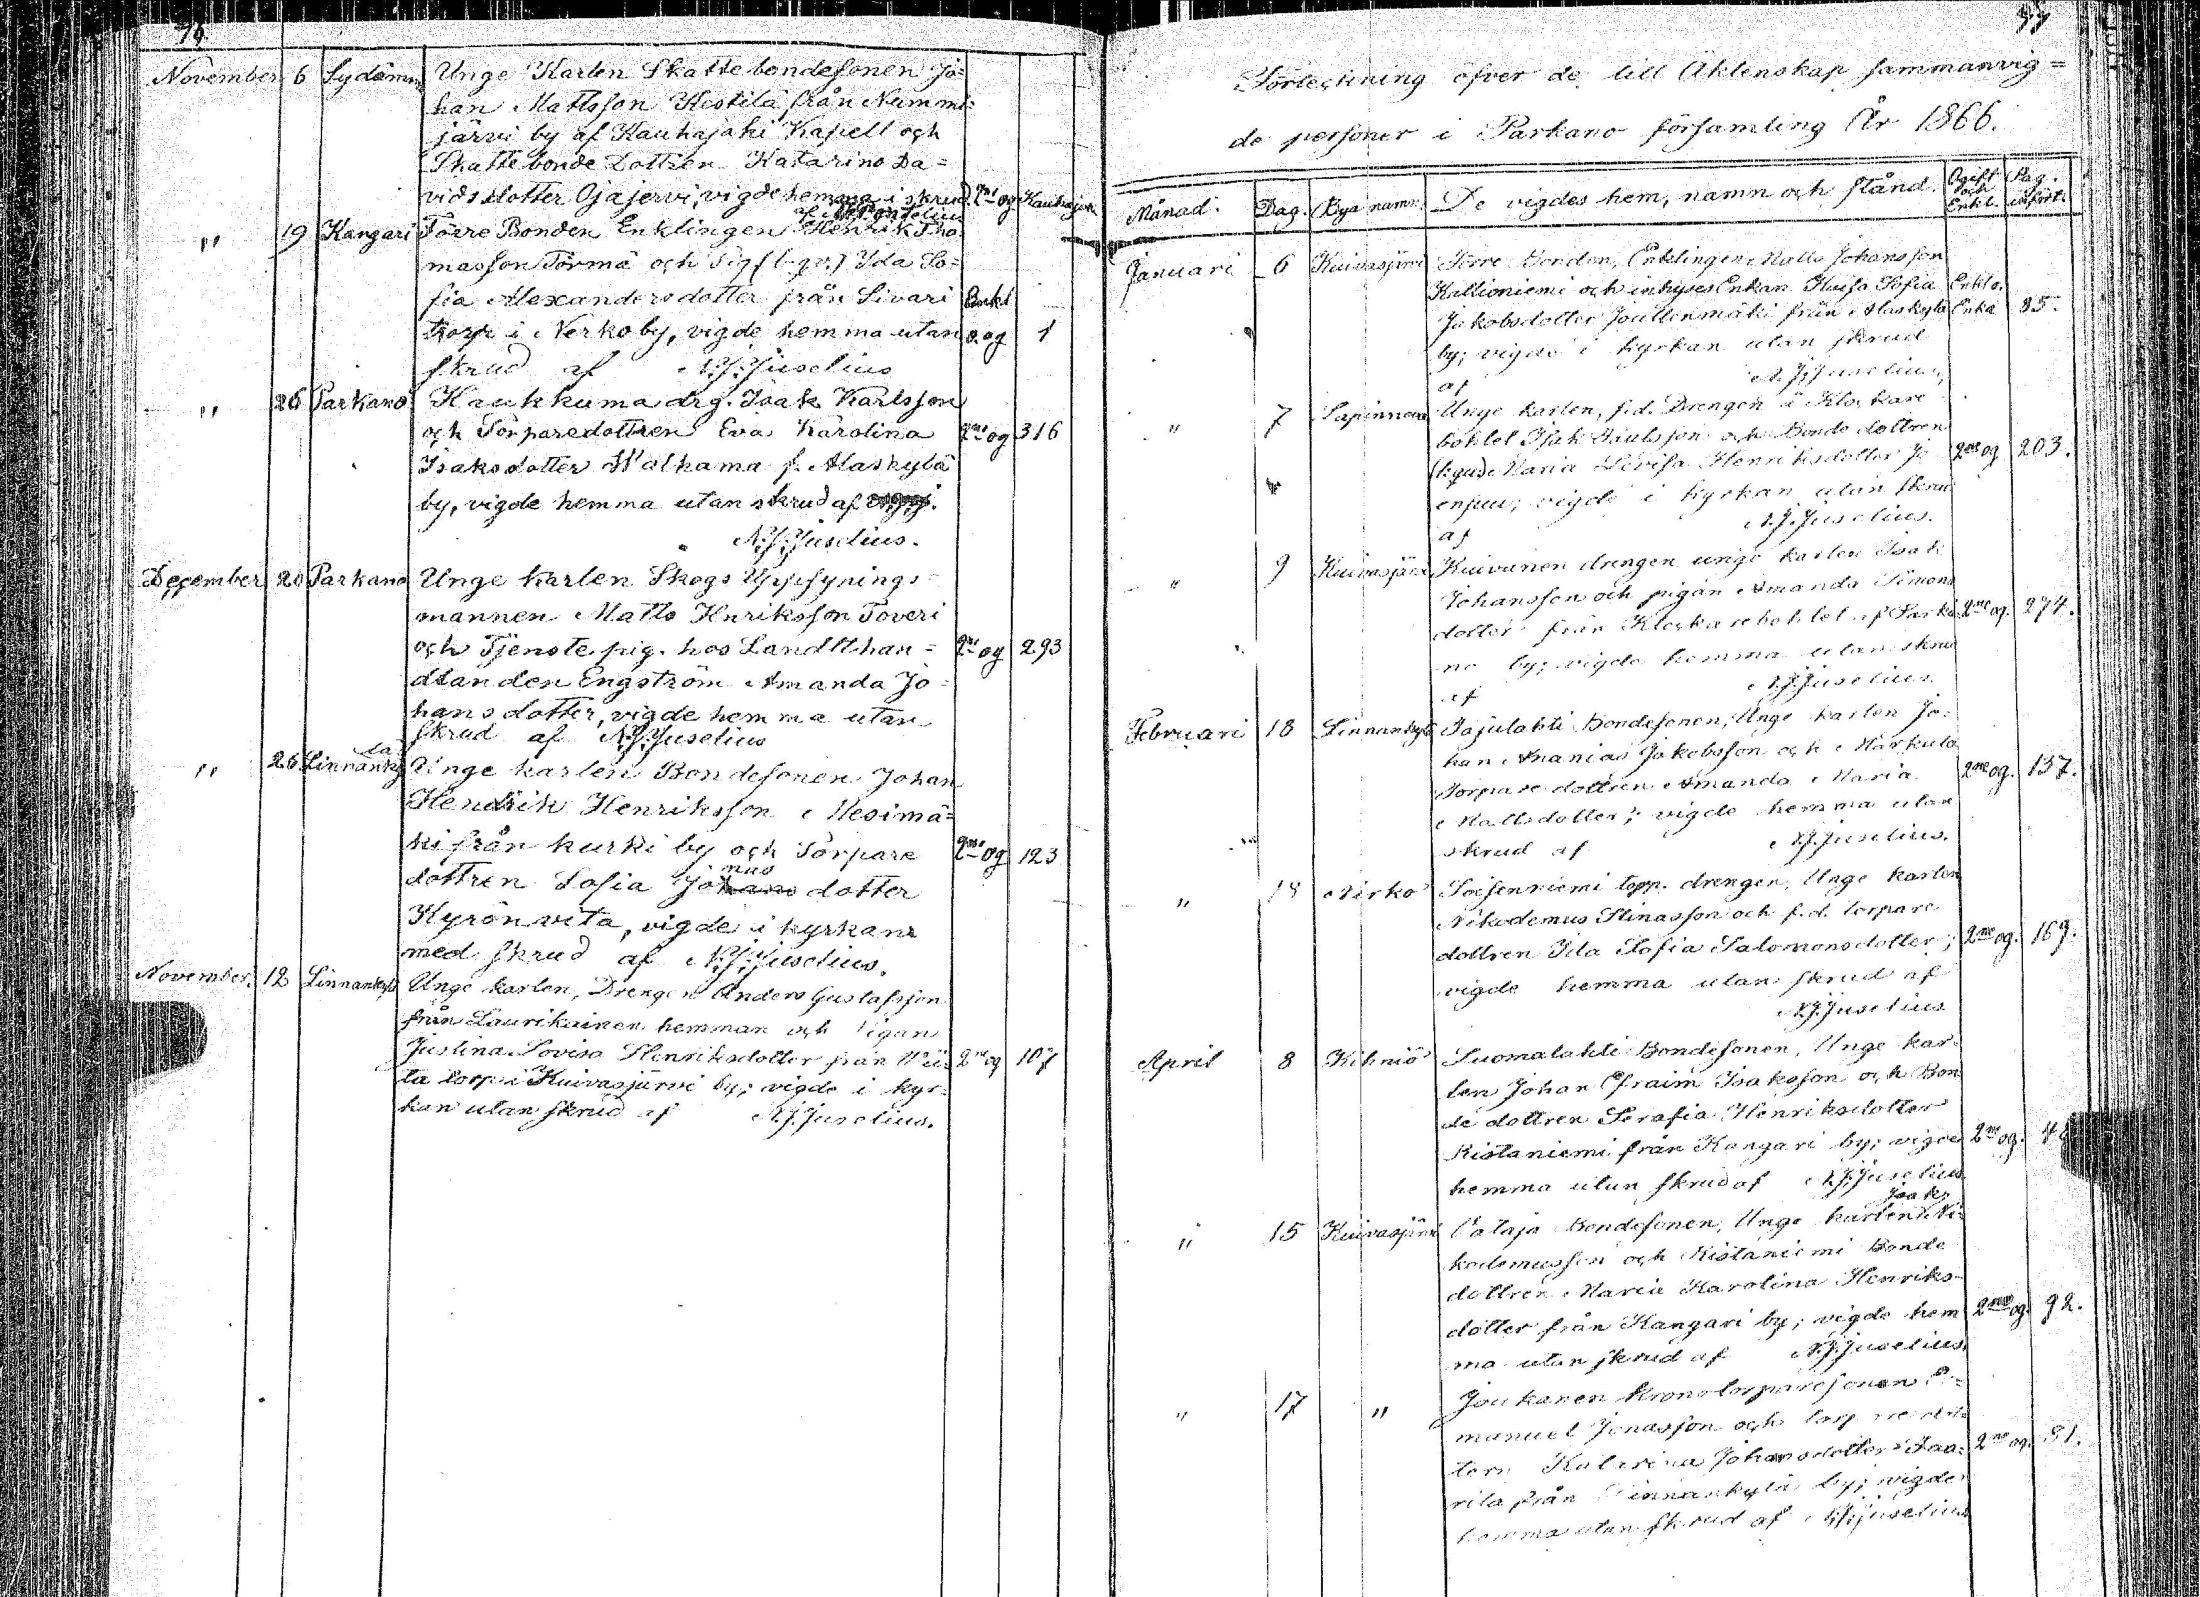 76.
November 6 Sydänm Unge Karlen Skattebondesonen Jo=
han Mattsson Kestilä från Nummi=
järvi by af Kauhajoki Kapell och
Skattebonde Dottren Katarina Da=
vidsdotter Ojajervi, vigde hemma i skrud 2ne og Kauhajok
af
" 19 Kangari Förre Bonden Enklingen Henrik Tho
masson Törmä och Pig (l. qv.) Ida So=
fia Alexandersdotter från Sivari Enkl
torp i Nerkoby, vigde hemma utan o. og 1
skrud af N.J. Juselius
" 26 Parkano Kaukkuma drg. Isak Karlsson
och Torparedottren Eva Karolina 2ne og 316
Isaksdotter Walkama f. Alaskylä
by, vigde hemma utan skrud af
N.J. Juselius.
December 20 Parkano Unge karlen Skogs Uppsynings=
mannen Matts Henriksson Toveri
och Tjenstepig. hos Landtthan= 2ne og 293
dlanden Engström Amanda Jo=
hansdotter, vigde hemma utan
skrud af N.J. Juselius
" 26 Linnanky Unge karlen Bondesonen Johan
Hendrik Henriksson Mesimä=
ki från kurki by och Torpare 2ne og 123
nus
dottren Sofia Johans dotter
Kyrönvita, vigde i kyrkan
med skrud af N.J. Juselius.
November. 12 Linnankyl Unge karlen, Drengen Anders Gustafsson
från Laurikainen hemman och Pigan
Justina Lovisa Henriksdotter från Wii= 2ne og 107
ta torp i Kuivasjärvi by; vigde i kyr=
kan utan skrud af N.J. Juselius.
77
Förteckning öfver de till Äktenskap sammanvig=
de personer i Parkano församling År 1866.
Månad. Dag. Bya namn. De vigdes hem, namn och stånd. Ogift och Enkl. Pag. infört.
Januari 6 Kuivasjärvi Förre Bonden, Enklingen Matts Johansson
Kallioniemi och inhyses Enkan Kaisa Sofia Enkl o.
Jakobsdotter Jouttenmäki från Alaskylä Enka 85.
by; vigde i kyrkan utan skrud
af N.J. Juselius,
" 7 Sapinneva Unge karlen, f.d. Drengen å Klockare
bohlet Isak Paulsson och Bonde dottren
Maria Lovisa Henriksdotter 2ne og 203.
vigde i kyrkan utan skrud
af N.J. Juselius.
" 9 Kuivasjärvi Kuivanen drengen unge karlen Isak
Johansson och pigan Amanda Simons
dotter från Klockarebohlet af Parka 2ne og. 274.
no by; vigde hemma utan skrud
af N.J. Juselius
Februari 18 Linnankylä Pajulahti Bondesonen, Unge karlen Jo=
han Ananias Jakobsson och Markula
Torpare dottren Amanda Maria 2ne og. 137.
Mattsdotter; vigde hemma utan
skrud af N.J. Juselius.
" 18 Nerko Soisenniemi topp. drengen, Unge karlen
Nikodemus Stinasson och f.d. torpare
dottren Ida Sofia Salomonsdotter; 2ne og. 169.
vigde hemma utan skrud af
N.J. Juselius
April 8 Kihniö Luomalahti Bondesonen, Unge kar=
len Johan Efraim Isaksson och Bon
de dottren Serafia Henriksdotter
Ristaniemi från Kangari by; vigde 2ne og.
hemma utan skrud af N.J. Juselius
Isak
" 15 Kuivasjärvi Cataja Bondesonen, Unge karlen Ni=
kodemusson och Ristaniemi Bonde
dottren Maria Karolina Henriks=
dotter från Kangari by; vigde hem 2ne og. 92.
ma utan skrud af N.J. Juselius.
" 17 " Joukanen Kronotorparesonen E=
manuel Jonasson och
Katarina Johansdotter Saa= 2ne og. 81.
rila från Linnankylä by; vigde
hemma utan skrud af N.J. Juselius